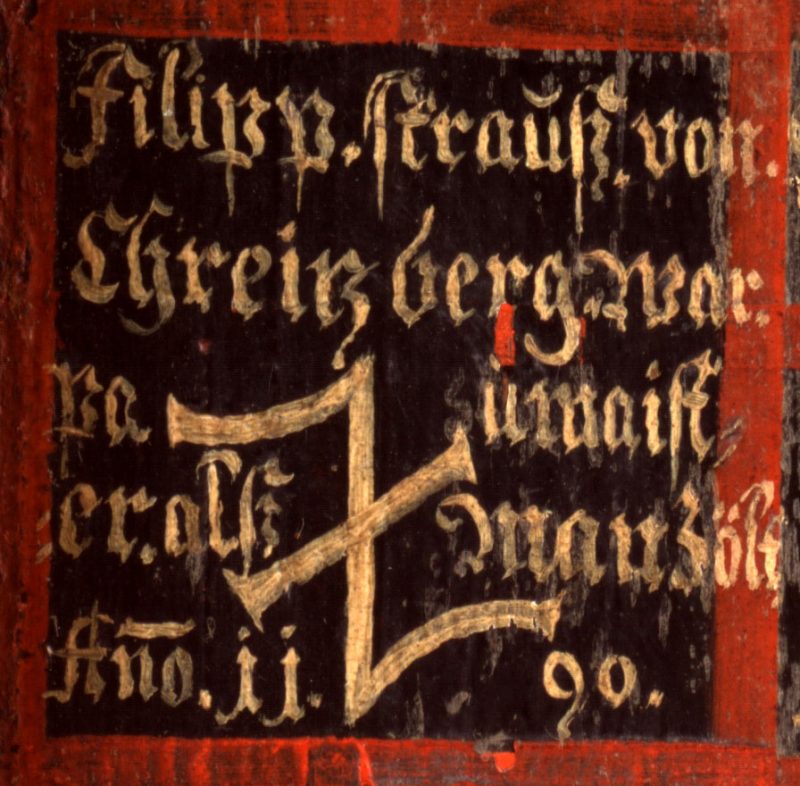 Filipp. straŭß. von.
Chreinzberg. war.
pa ŭmaist
er. alß man zölt
An̄o. 11. 90.